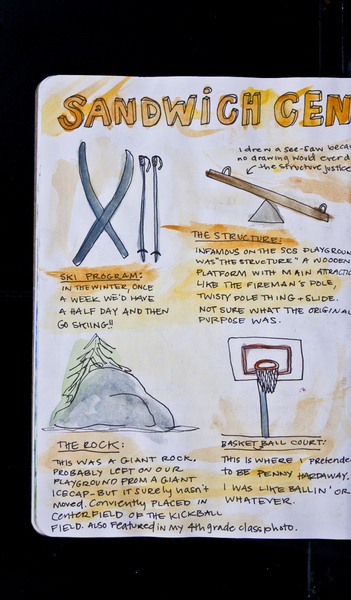 SANDWICH CEN
I drew a see-saw becau
no drawing would ever d
the structure justice
THE STRUCTURE:
INFAMOUS ON THE SCS PLAYGROUN
WAS "THE STRUCTURE" A WOODEN
PLATFORM WITH MAIN ATTRACTIO
LIKE THE FIREMAN'S POLE,
TWISTY POLE THING + SLIDE.
NOT SURE WHAT THE ORIGINAL
PURPOSE WAS.
SKI PROGRAM:
IN THE WINTER, ONCE
A WEEK WE'D HAVE
A HALF DAY AND THEN
GO SKIING!!
THE ROCK:
THIS WAS A GIANT ROCK,
PROBABLY LEFT ON OUR
PLAYGROUND FROM A GIANT
ICECAP-BUT IT SURELY HASN'T
MOVED. CONVIENTLY PLACED IN
CENTERFIELD OF THE KICKBALL
FIELD. ALSO FEATURED IN MY 4th grade class photo.
BASKETBALL COURT:
THIS IS WHERE I PRETENDE
TO BE PENNY HARDAWAY.
I WAS LIKE BALLIN' OR
WHATEVER.